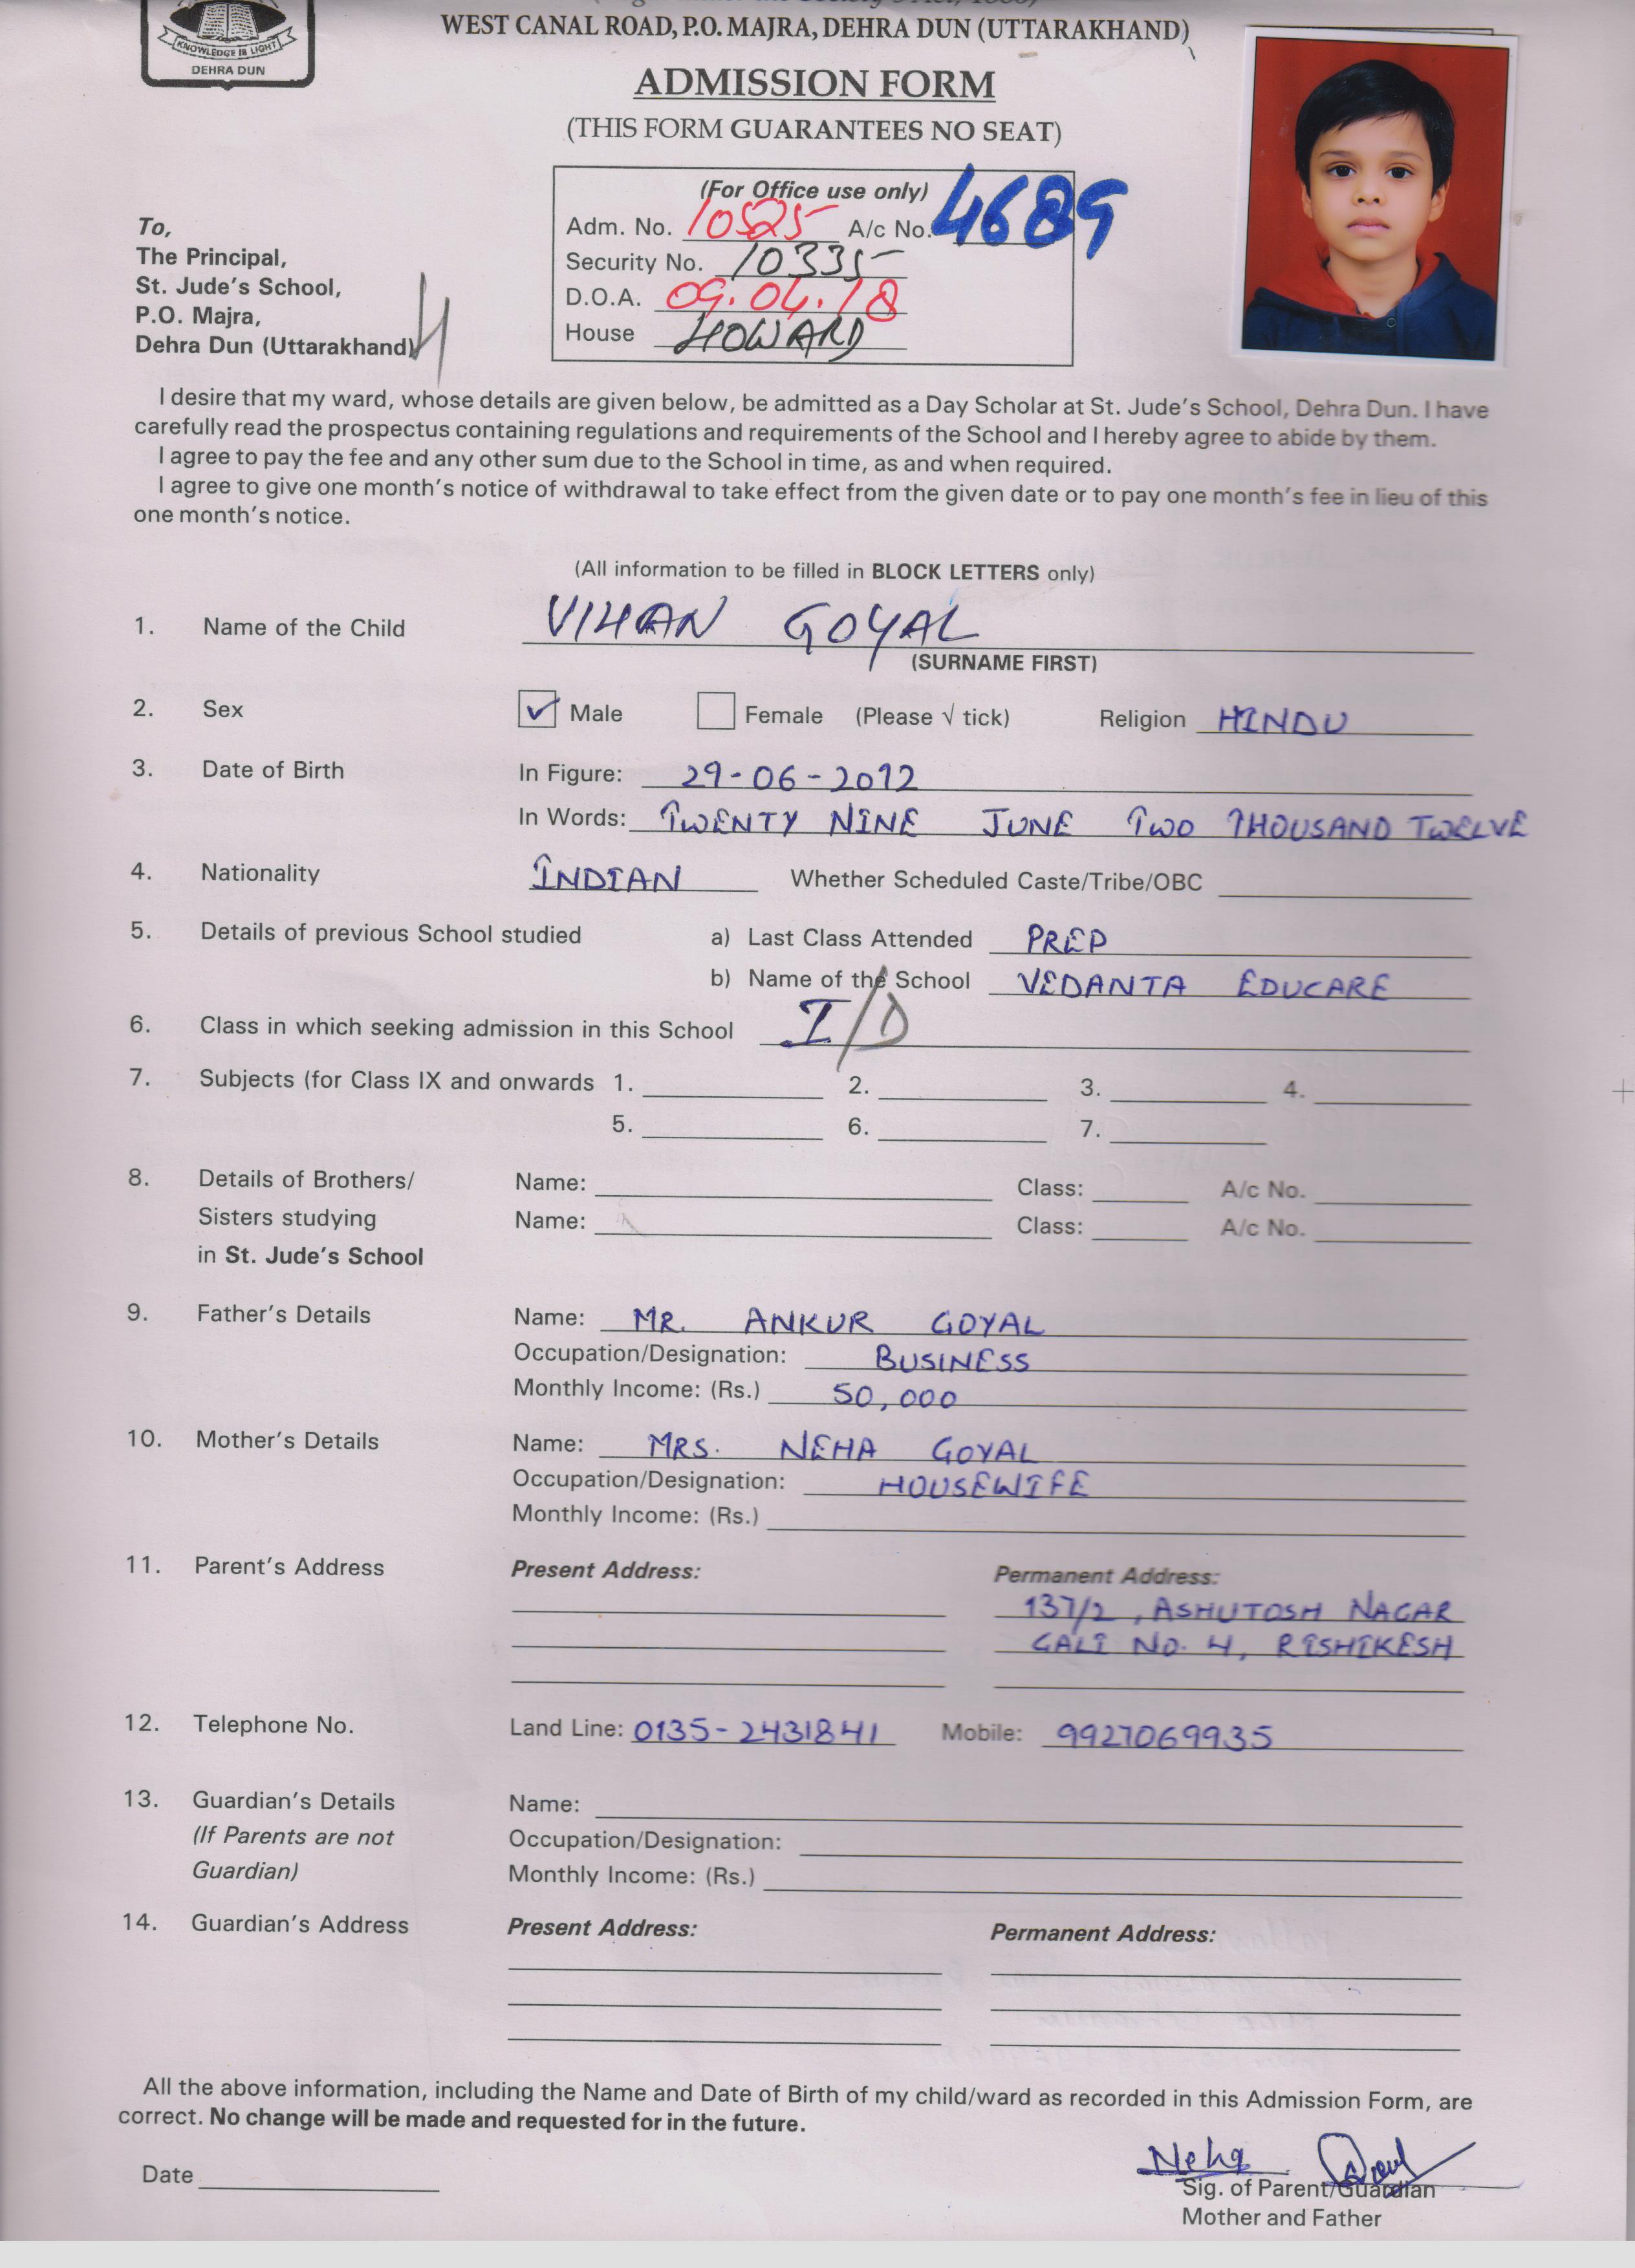 KNOWLEDGE IS LIGHT
DEHRA DUN
WEST CANAL ROAD, P.O. MAJRA, DEHRA DUN (UTTARAKHAND)
ADMISSION FORM
(THIS FORM GUARANTEES NO SEAT)
(For Office use only)
Adm. No. 10525 A/c No. 4689
Security No. 10335
D.O.A. 09.04.18
House HOWARD
To,
The Principal,
St. Jude's School,
P.O. Majra,
Dehra Dun (Uttarakhand)
I desire that my ward, whose details are given below, be admitted as a Day Scholar at St. Jude's School, Dehra Dun. I have
carefully read the prospectus containing regulations and requirements of the School and I hereby agree to abide by them.
I agree to pay the fee and any other sum due to the School in time, as and when required.
I agree to give one month's notice of withdrawal to take effect from the given date or to pay one month's fee in lieu of this
one month's notice.
(All information to be filled in BLOCK LETTERS only)
1. Name of the Child VIHAN GOYAL
(SURNAME FIRST)
2. Sex ✓ Male Female (Please √ tick) Religion HINDU
3. Date of Birth In Figure: 29-06-2012
In Words: TWENTY NINE JUNE TWO THOUSAND TWELVE
4. Nationality INDIAN Whether Scheduled Caste/Tribe/OBC
5. Details of previous School studied a) Last Class Attended PREP
b) Name of the School VEDANTA EDUCARE
6. Class in which seeking admission in this School I/D
7. Subjects (for Class IX and onwards 1. 2. 3. 4.
5. 6. 7.
8. Details of Brothers/ Name: Class: A/c No.
Sisters studying Name: Class: A/c No.
in St. Jude's School
9. Father's Details Name: MR. ANKUR GOYAL
Occupation/Designation: BUSINESS
Monthly Income: (Rs.) 50,000
10. Mother's Details Name: MRS. NEHA GOYAL
Occupation/Designation: HOUSEWIFE
Monthly Income: (Rs.)
11. Parent's Address Present Address: Permanent Address:
137/2, ASHUTOSH NAGAR
GALI NO. 4, RISHIKESH
12. Telephone No. Land Line: 0135-2431841 Mobile: 9927069935
13. Guardian's Details Name:
(If Parents are not Occupation/Designation:
Guardian) Monthly Income: (Rs.)
14. Guardian's Address Present Address: Permanent Address:
All the above information, including the Name and Date of Birth of my child/ward as recorded in this Admission Form, are
correct. No change will be made and requested for in the future.
Neha
Date Sig. of Parent/Guardian
Mother and Father